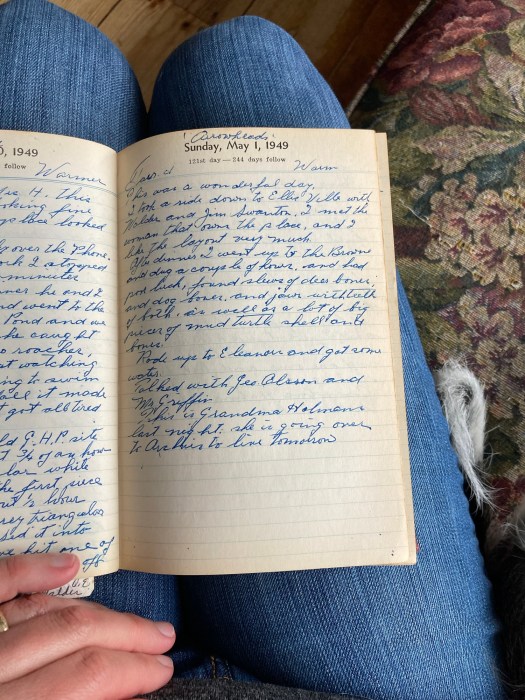 0, 1949
follow Warmer
H. this
looking fine
place looked
over the Phone.
I stopped
minutes
and I
went to the
Pond and we
he caught
roaches,
watching
to swim
it made
got all tired
G. H. P. site
while
the first piece
½ hour
grey triangular
it into
hit one of
off
"Arrowheads"
Sunday, May 1, 1949
121st day — 244 days follow
Warm
This was a wonderful day.
I took a ride down to Ellis Ville with
Walder and Jim Swanton, I met the
woman that owns the place, and I
like the layout very much.
After dinner I went up to the Browne
and dug a couple of hours, and had
poor luck, found slews of deer bones,
and dog bones, and jaws with teeth
of both, as well as a lot of big
pieces of mud turtle shell and
bones.
Rode up to Eleanors and got some
water.
Talked with Geo Olsson and
Mr Griffin
This is Grandma Holmens
last night. she is going over
to Archis to live tomorrow